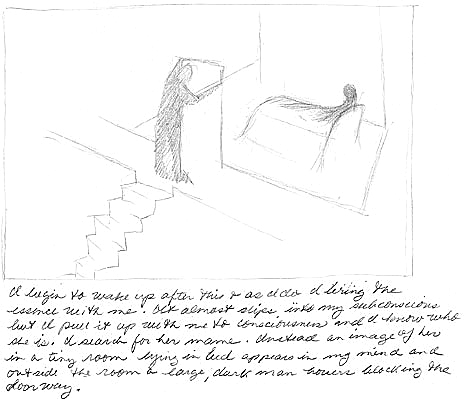 I begin to wake up after this & as I do I bring the
essence with me. It almost slips into my subconscious
but I pull it up with me to consciousness and I know who
she is. I search for her name. Instead an image of her
in a tiny room lying in bed appears in my mind and
outside the room a large, dark man hovers blocking the
doorway.